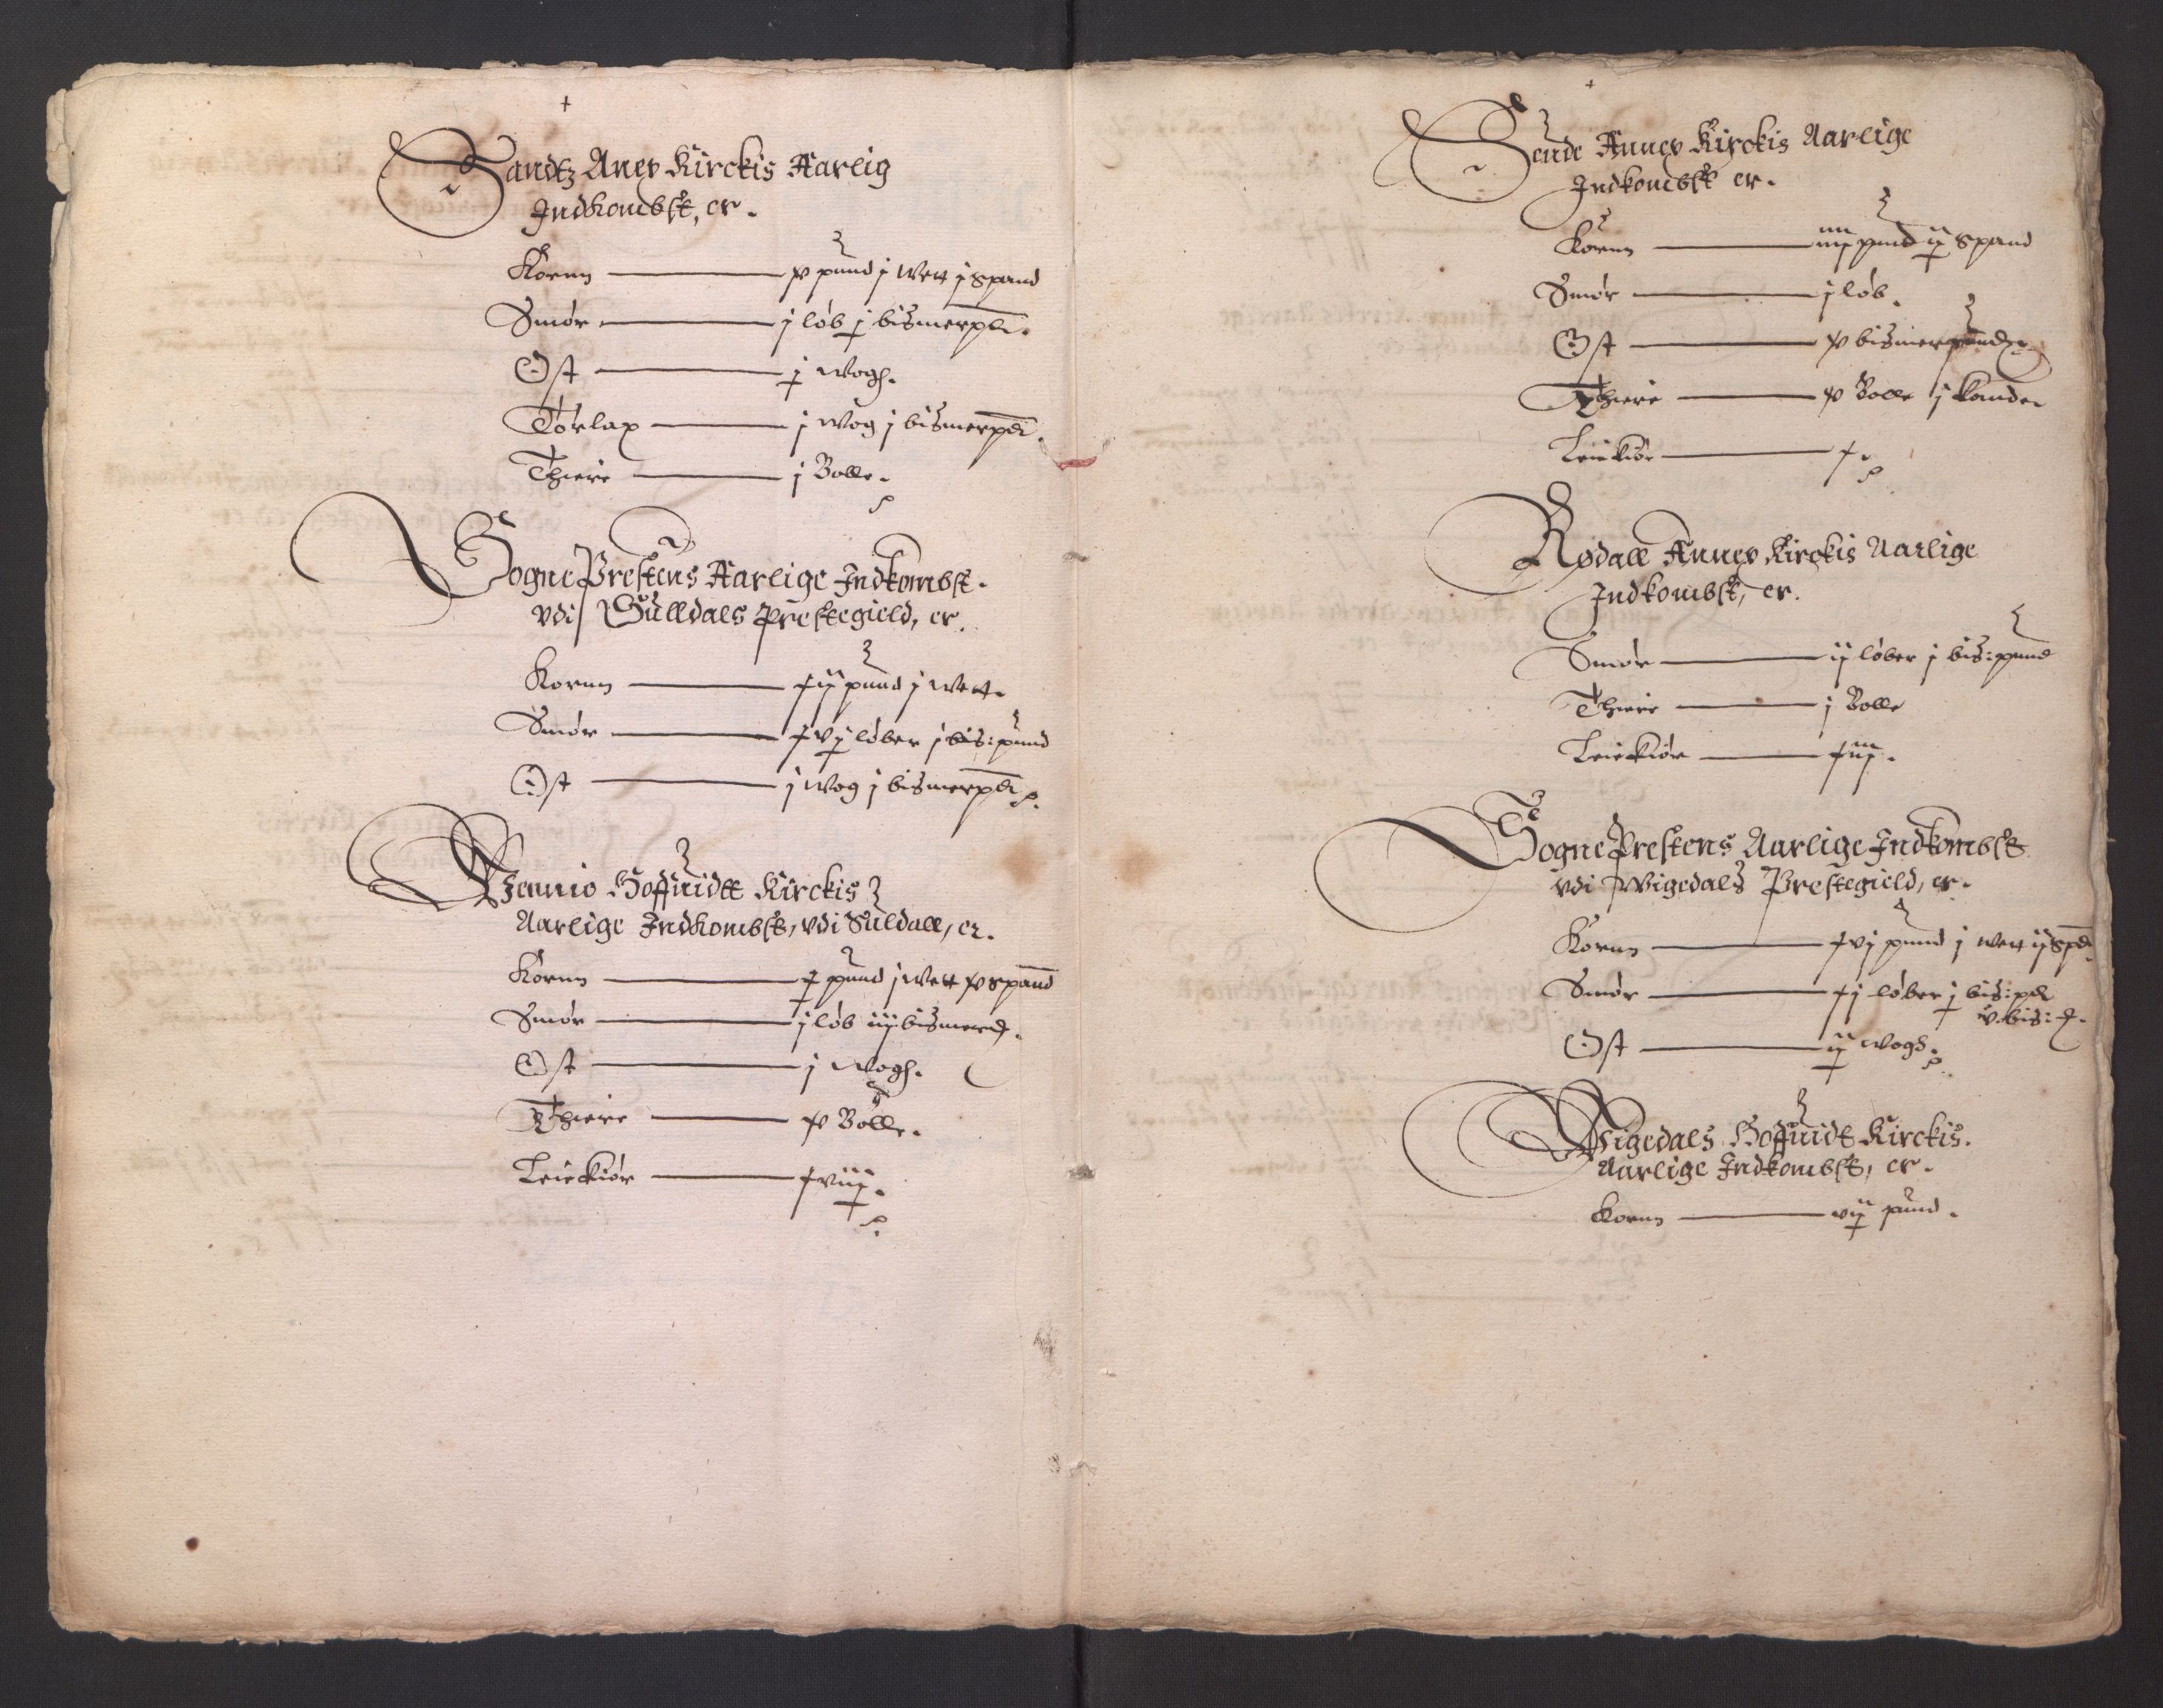 Sandtz Anex Kirckis Aarlig
Indkombst, er.
Kornn — xv pund j Wett j spand
Smør — j løb j bismerpd.
Ost — j wogh.
Tørlax — j wog j bismerpd.
Thiere — j Bolle.
SognePrestens Aarlige Indkombst.
vdi Sulldals prestegield, er.
Kornn — xij pund j wett.
Smør — xvj løber j bis: pund
Ost — j wog j bismerpd.
Hoffuidtt Kirckis
Aarlige Indkombst, vdi Suldall, er.
Kornn — pund j wett xv spand
Smør — j løb iij bismerpd.
Ost — j wogh.
Thiere — xv Bolle.
Leiekiør — xviij.
Sende Annex Kirckis Aarlige
Indkombst er.
Kornn — iiij pund ij spand
Smør — j løb.
Ost — xv bismerpunder
Thiere — xv Bolle j kande.
Leiekiør — x.
Rødall Annex Kirckis Aarlige
Indkombst, er.
Smør — ij løber j bis: pund
Thiere — j Bolle
Leiekiør — xiij.
SognePrestens Aarlige Indkombst
vdi Wigedals Prestegield, er.
Kornn — xvj pund j wett ij spd.
Smør — xj løber j bis: pd
v bis:
Ost — ij wogh.
Wigedals Hoffuidt Kirckis.
Aarlige Indkombst, er.
Kornn — vij pund.